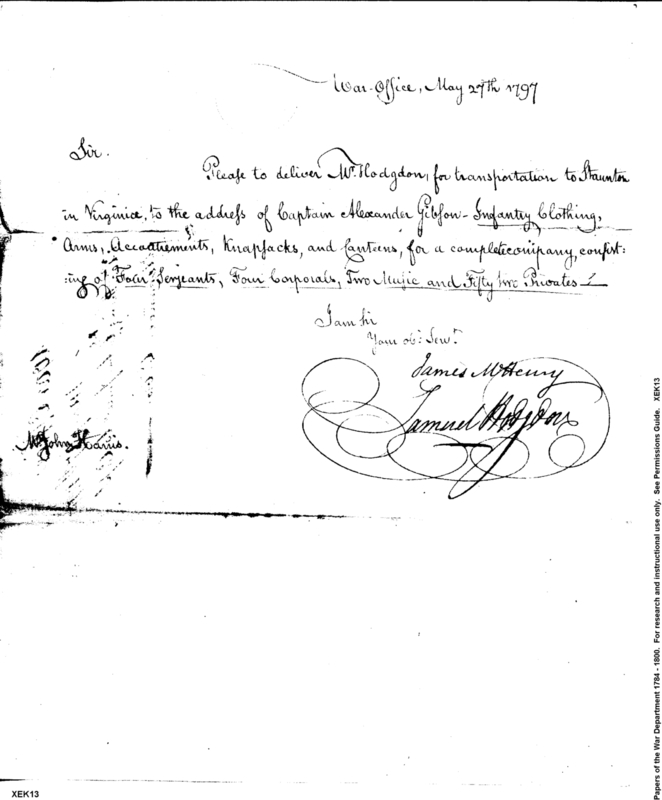 War-Office, May 27th 1797
Sir.
Please to deliver Mr. Hodgdon, for transportation to Staunton
in Virginia, to the address of Captain Alexander Gibson - Infantry Clothing,
Arms, Accoutrements, Knapsacks, and Canteens, for a complete company, consist:
:ing of Four Serjeants, Four Corporals, Two Music and Fifty two Privates
I am Sir
Your ob: Servt.
James McHenry
Samuel Hodgdon
Mr. John Harris.
XEK13
Papers of the War Department 1784 - 1800. For research and instructional use only. See Permissions Guide. XEK13